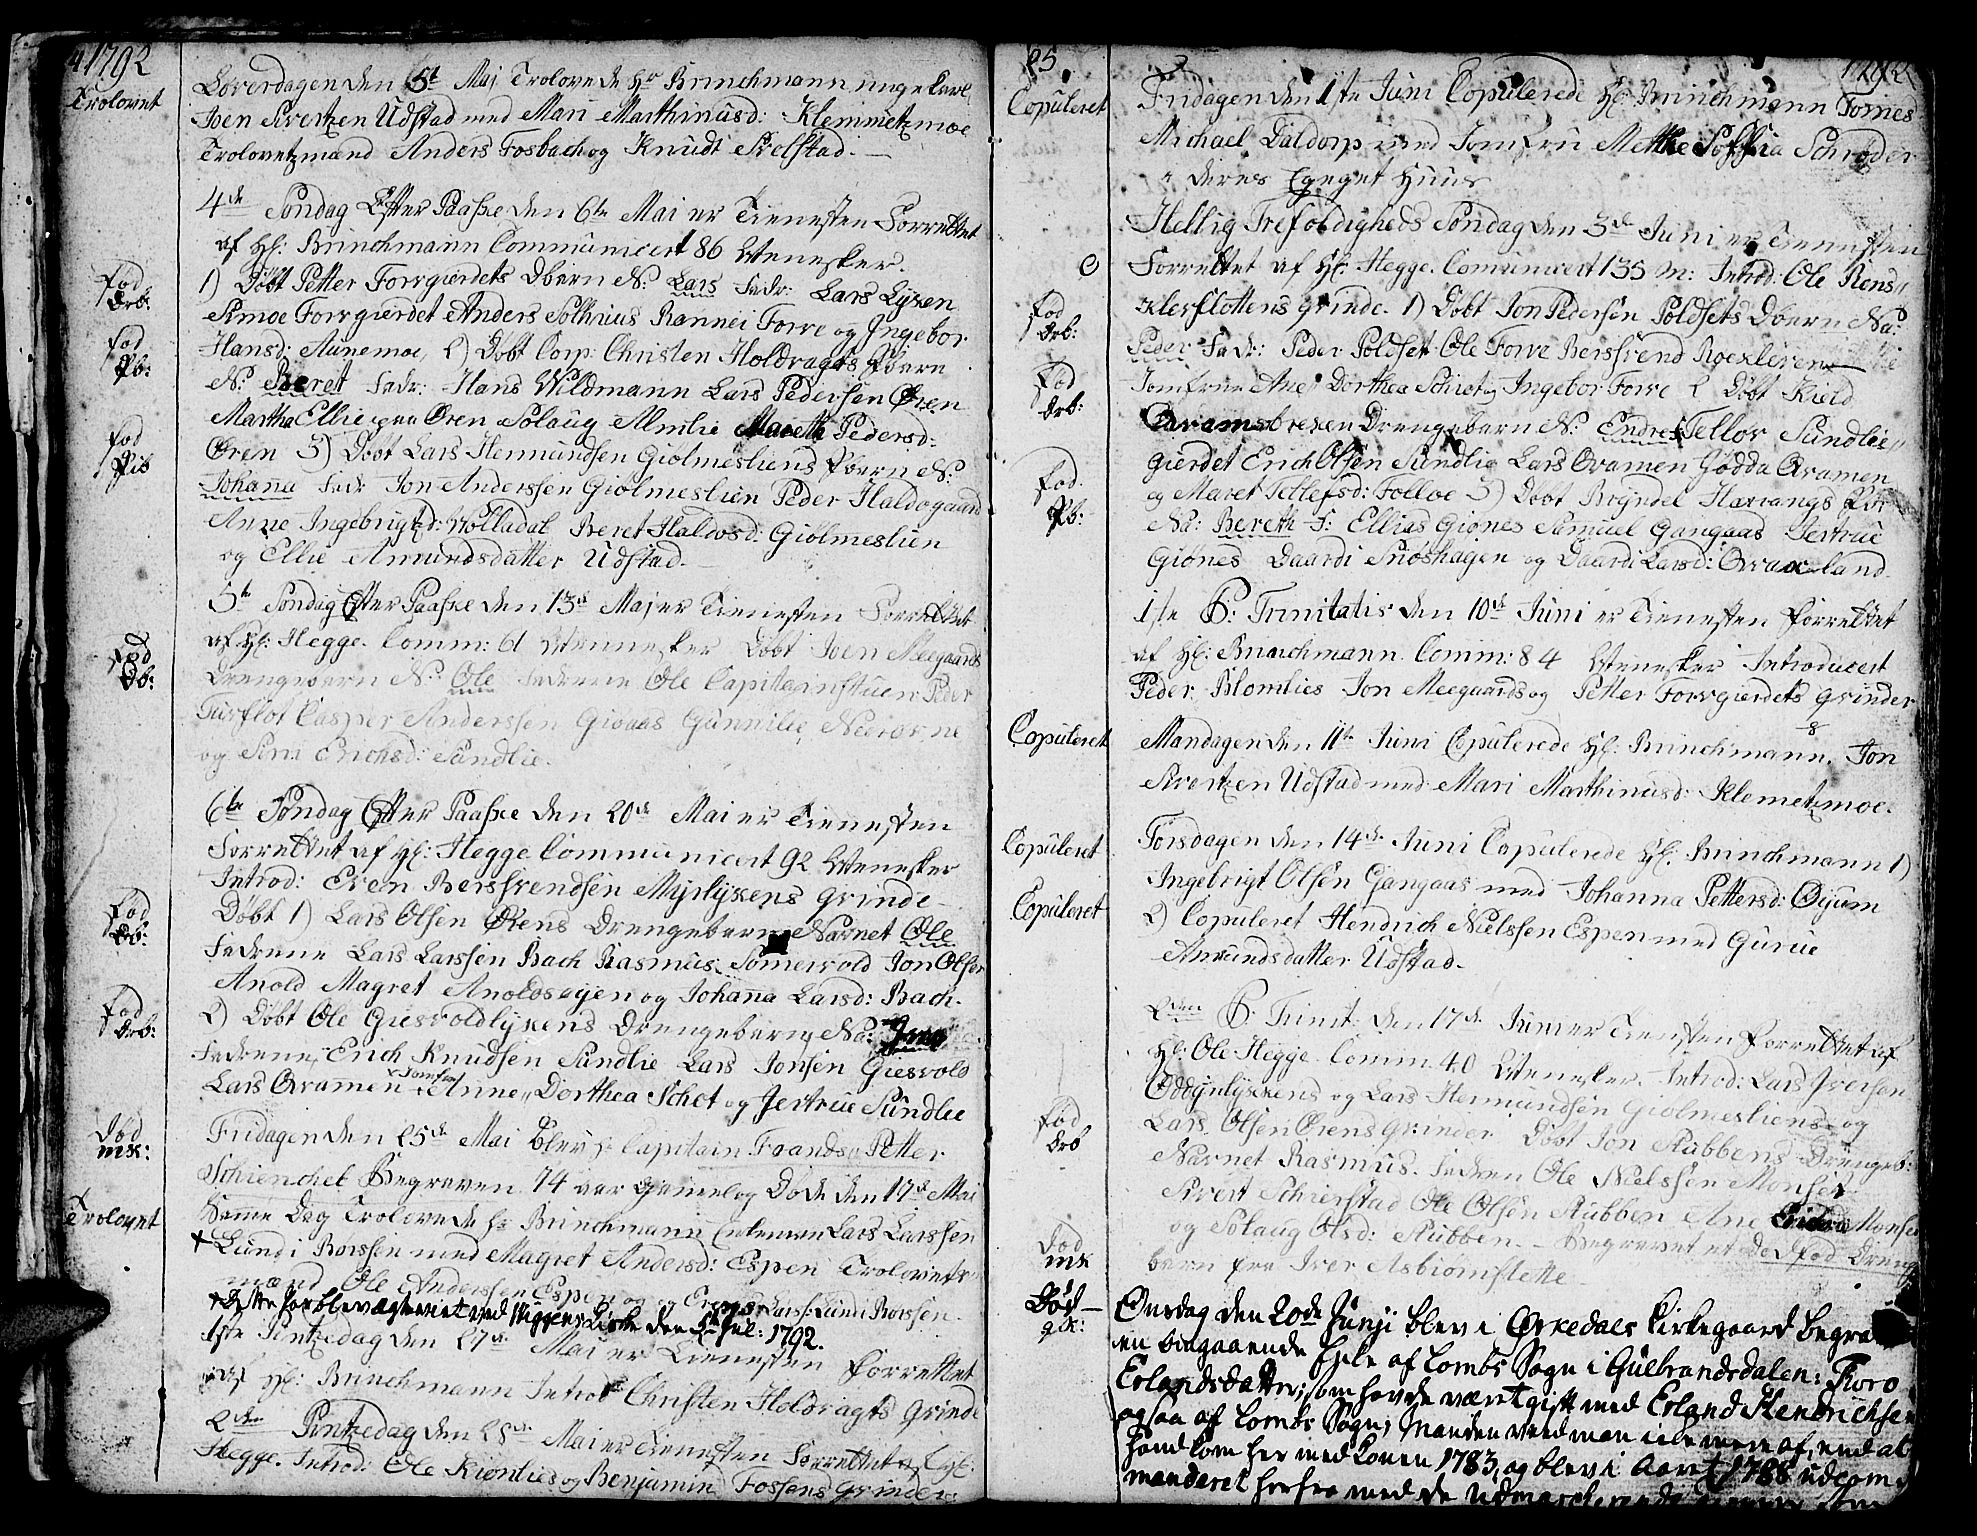 1792
Trolovet
Løverdagen den 5t Maj Trolovede Hr Brinchmann ungekarl
Joen Sivertzen Udstad med Mari Marthinusd: Klemmetzmoe
Trolovetzmænd Anders Fosbach og Knudt Skelstad.
4de Søndag Efter Paaske den 6te Mai er Tienesten Forrettet
af Hl: Brinchmann Communicert 86 Menesker.
fød
Drb:
1) Døbt Petter Forrgierdets Dbern N: Lars Fadr: Lars Lysen
Simoe Forrgierdet Anders Solhuus Rannei Forre og Ingebor
fød
Pb:
Hansd: Aunemoe, 2) Døbt Corp: Christen Holdragts Pbern
N: Beret Fadr: Hans Wildmann Lars Pedersen Øren
Martha Ellie paa Øren Solaug Almlie Mareth Pedersd:
fød
Pib
Øren 3) Døbt Lars Hemundsen Giolmesliens Pbern N:
Johanna Fadr Jon Anderssen Giolmeslien Peder Haldogaard
Anne Ingebrigtzd: Wolladal Beret Haldosd: Giolmeslien
og Ellie Amundsdatter Udstad.
5te Søndag Efter Paaske den 13de Maj er Tienesten Forrettet
af Hl: Hegge. Comm: 61 Mennesker Døbt Joen Meegaards
fød
Db:
Drengebern N: Ole Fadrene Ole Capitteinstuen Peder
Turflot Casper Anderssen Gioaas Gunnilie
og Sini Erichsd: Sundlie.
6te Søndag Efter Paaske den 20de Mai er Tienesten
Forrettet af Hl: Hegge Communicert 92 Menesker
Introd: Even Bersvendsen Myrlykens grinde
fød
Db:
Døbt 1) Lars Olsen Ørens Drengebern Navnet Ole
Fadrene Lars Larssen Bach Rasmus Somervold Jon Olsen
Anold Magret Anoldsøyen og Johanna Larsd: Bach.
fød
Drb:
2) Døbt Ole Giesvoldlykens Drengebern Na:
Fadrene Erich Knudsen Sundlie Lars Jonsen Giesvold
Lars Qvamen Jomfru Anne Dorthea Schet og Jertrue Sundlie
død
mk:
Fridagen den 25de Mai blev Hr Capitain Frands Petter
Schienchel Begraven 74 aar gamel og Døde den 17de Mai
Trolovet
Samme Dag Trolovede Hr Brinchmann Lars Larssen
Lundi Borssen med Magret Andersd: Espen Trolovetz
mænd Ole Anderssen Espen og Larss: Lundi Borssen.
Dette Par blev ægteviet ved Kirke den Jul: 1792.
1ste Pintzedag den 27de Mai er Tienesten forrettet
af Hl: Brinchmann Introd Christen Holdragts grinde
2den Pintzedag den 28de Mai er Tienesten Forrettet af Hl:
Hegge. Introd: Ole Kiønlies og Benjamin Fossens grinder
25.
1792
Copuleret
Fridagen den 1ste Juni Copulerede Hl: Brinchmann Tomes
Michael Daldorp med Jomfru Mette Soffia Schrøder
i deres Egeget Huus
Hellig Trefoldigheds Søndag den 3de Juni er Tienesten
Forrettet af Hl: Hegge. Comunicert 135 M: Introd: Ole Rens,,
fød
Drb:
Klefslottens grinde. 1) Døbt Jon Pedersen Poldsets Dbern Na:
Peder Fadr: Peder Poldset Ole Forve Bersvend
fød
Drb:
Jomfrue Ane Dorthea Schrot og Ingebor Forre 2 Døbt Kield
Qvamsbrenen Drengebern N: Endre Tellov Sundlie,,
gierdet Erich Olsen Sundlie Lars Qvamen Godda Qvamen
fød
Pb:
og Maret Tellefsd: Folloe 3) Døbt Bryndel Harvangs
Na: Bereth F: Ellias Giønes Samuel Gangaas Jertrue
Giønes Daardi Snoshagen og Daardi Larsd:
1ste S: Trinitatis den 10de Juni er Tienesten forrettet
af Hl: Brinchmann. Comm: 84 Menesker Introducert
Peder Blomlies Jon Meegaards og Petter Forrgierdets grinder
Copuleret
Mandagen den 11te Juni Copulerede Hl: Brinchmann. Jon
Sivertzen Udstad med Mari Marthinusd: Klemetzmoe.
Copuleret
Torsdagen den 14de Juni Copulerede Hl: Brinchmann 1)
Ingebrigt Olsen Gangaas med Johanna Pettersd: Øyum
Copuleret
2) Copuleret Hendrich Nielssen Espen med Gurue
Amundsdatter Udstad.
2den S: Trinit: den 17de Juni er Tienesten forrettet af
Hl: Ole Hegge. Comm. 40 Menesker. Introd: Lars Iversen
Oddynlykkens og Lars Hemundsen Giolmesliens og
fød
Drb
Lars Olsen Ørens grinder Døbt Jon Stubbens Drengeb:
Navnet Rasmus. Fadren Ole Nielssen Monset
Sivert Schierstad Ole Olsen Stubben Ane Monset
og Solaug Olsd: Stubben. Begravet et Dødfød Drenge
død
mk
bern fra Iver Asbiørnslette
Død
qk:
Onsdag den 20de Junji blev i Ørkedals Kirkegaard begra
en omgaaende Fhele af Lombs Sogn i Gulbrandsdalen:
Erlandsdatter, som havde været gift med Erland Hendrichsen
ogsaa af Lombs Sogn; Manden veed man icke mere af, end at
hand kom her med konen 1783, og blev i Aaret 1788 udcom
manderet herfra med de